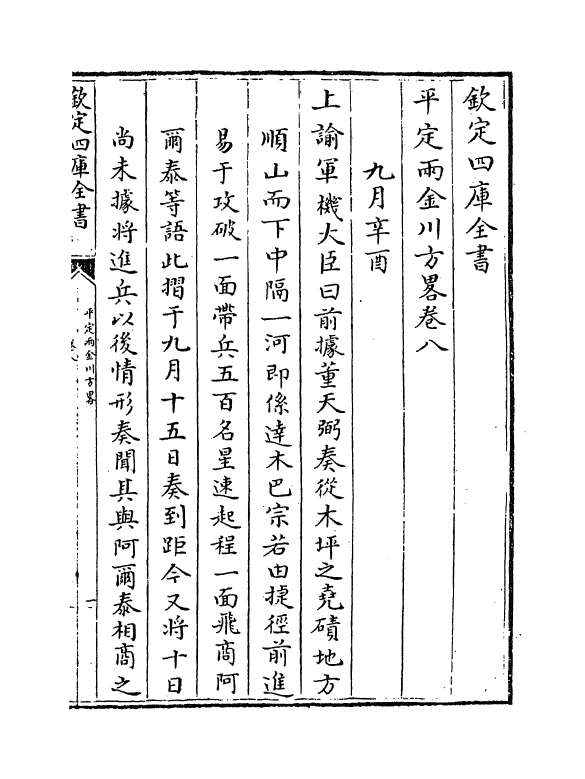 欽定四庫全書
平定兩金川方畧卷八
九月辛酉
上諭軍機大臣曰前據董天弼奏從木坪之堯磧地方
順山而下中隔一河即係達木巴宗若由捷徑前進
易于攻破一面帶兵五百名星速起程一面飛商阿
爾泰等語此摺于九月十五日奏到距今又將十日
尚未據將進兵以後情形奏聞其與阿爾泰相商之
欽定四庫全書
平定兩金川方畧
一